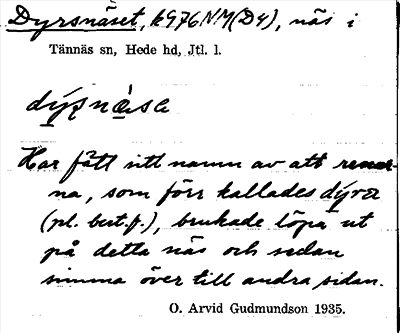 Dyrsnäset, k976NM(D4), näs i
Tännäs sn, Hede hd, Jtl. l.
dýṣnè̱sa
Har fått sitt namn av att renar-
na, som förr kallades dýra
(pl. best. f.), brukade löpa ut
på detta näs och sedan
simma över till andra sidan.
O. Arvid Gudmundson 1935.